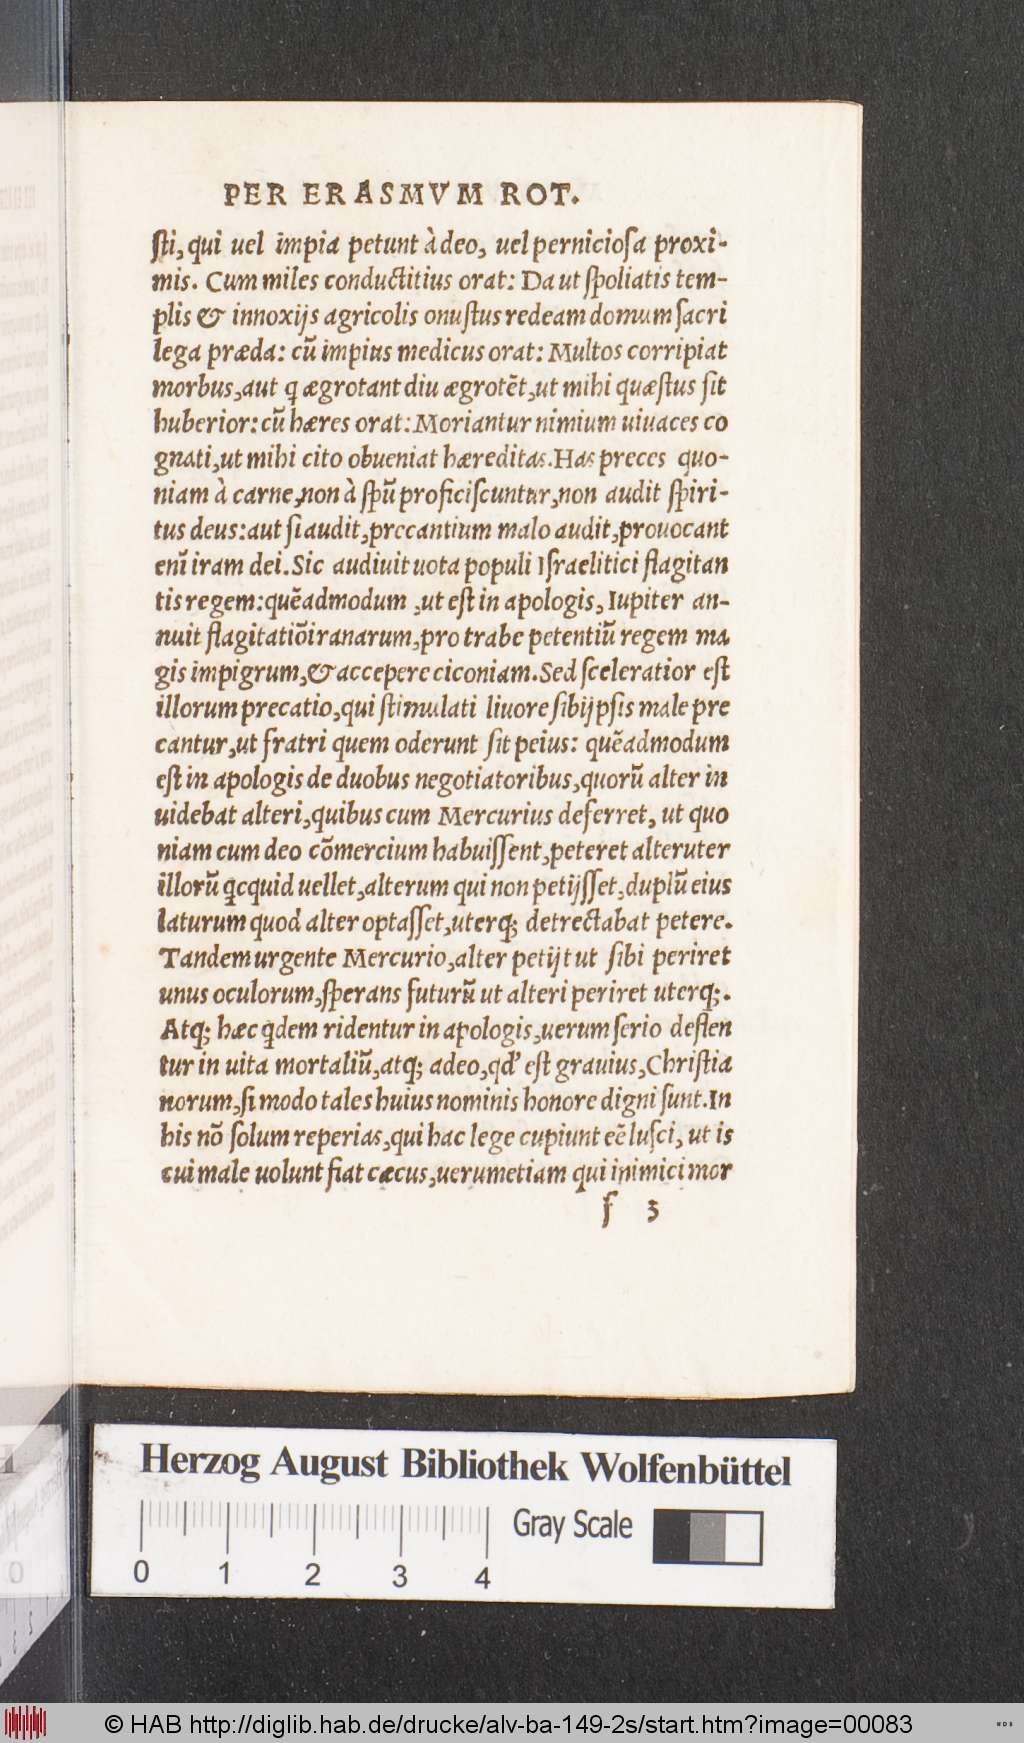 PER ERASMVM ROT.
sti, qui uel impia petunt à deo, uel perniciosa proxi-
mis. Cum miles conductitius orat: Da ut spoliatis tem-
plis & innoxijs agricolis onustus redeam domum sacri
lega præda: cũ impius medicus orat: Multos corripiat
morbus, aut q ægrotant diu ægrotẽt, ut mihi quæstus sit
huberior: cũ hæres orat: Moriantur nimium uiuaces co
gnati, ut mihi cito obueniat hæreditas. Has preces quo-
niam à carne, non à spũ proficiscuntur, non audit spiri-
tus deus: aut si audit, precantium malo audit, prouocant
enĩ iram dei. Sic audiuit uota populi Israelitici flagitan
tis regem: quẽadmodum, ut est in apologis, Iupiter an-
nuit flagitatiõi ranarum, pro trabe petentiũ regem ma
gis impigrum, & accepere ciconiam. Sed sceleratior est
illorum precatio, qui stimulati liuore sibijpsis male pre
cantur, ut fratri quem oderunt sit peius: quẽadmodum
est in apologis de duobus negotiatoribus, quorũ alter in
uidebat alteri, quibus cum Mercurius deferret, ut quo
niam cum deo cõmercium habuissent, peteret alteruter
illorũ qcquid uellet, alterum qui non petijsset, duplũ eius
laturum quod alter optasset, uterq; detrectabat petere.
Tandem urgente Mercurio, alter petijt ut sibi periret
unus oculorum, sperans futurũ ut alteri periret uterq;.
Atq; hæc qdem ridentur in apologis, uerum serio deflen
tur in uita mortaliũ, atq; adeo, qd' est grauius, Christia
norum, si modo tales huius nominis honore digni sunt. In
his nõ solum reperias, qui hac lege cupiunt eẽ lusci, ut is
cui male uolunt fiat cæcus, uerumetiam qui inimici mor
f 3
Herzog August Bibliothek Wolfenbüttel
Gray Scale
0 1 2 3 4
© HAB http://diglib.hab.de/drucke/alv-ba-149-2s/start.htm?image=00083